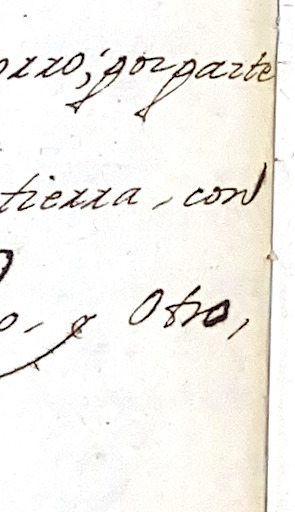 por parte
tierra, con
y Otro,